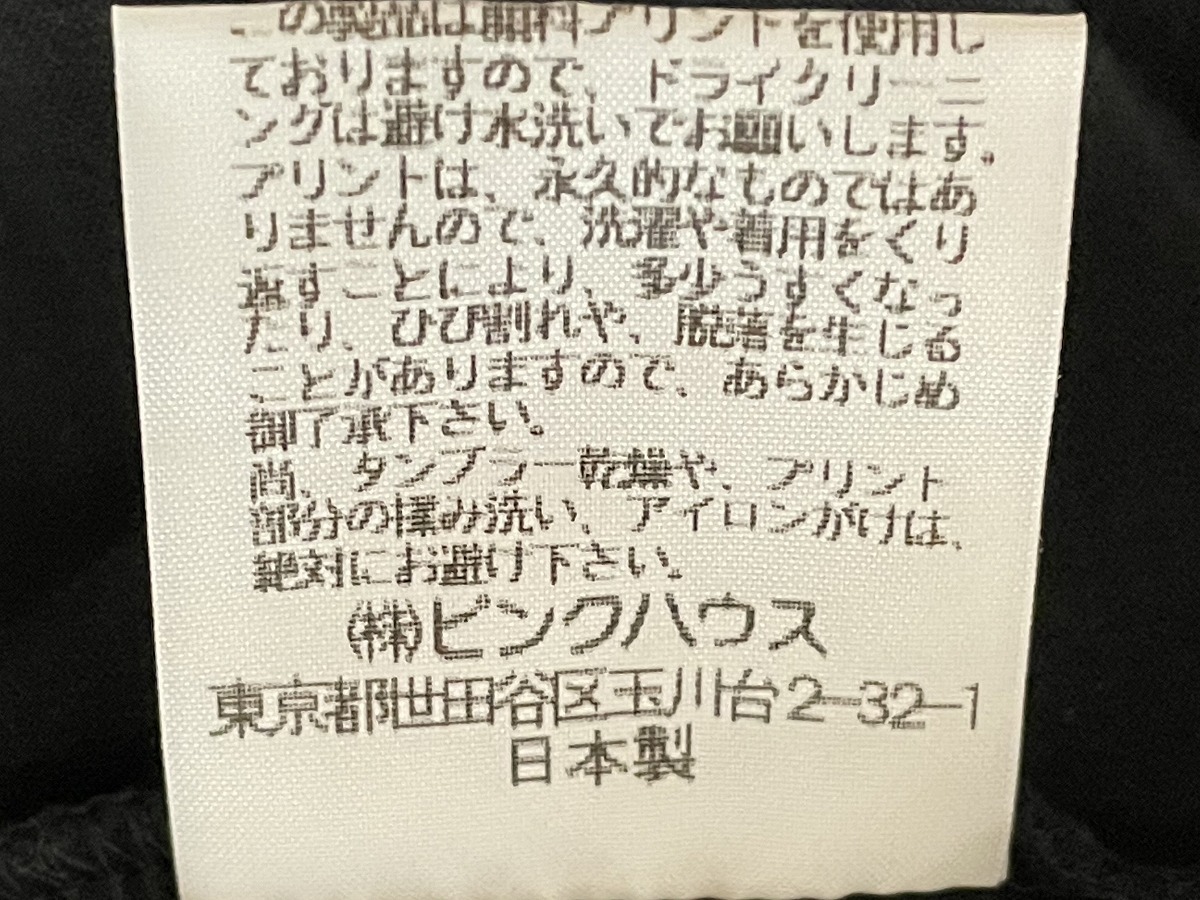 この製品は顔料プリントを使用し
ておりますので、ドライクリーニ
ングは避け水洗いでお願いします。
プリントは、永久的なものではあ
りませんので、洗濯や着用をくり
返すことにより、多少うすくなっ
たり、ひび割れや、脱落を生じる
ことがありますので、あらかじめ
御了承下さい。
尚、タンブラー乾燥や、プリント
部分の揉み洗い、アイロンがけは、
絶対にお避け下さい。
㈱ピンクハウス
東京都世田谷区玉川台2-32-1
日本製